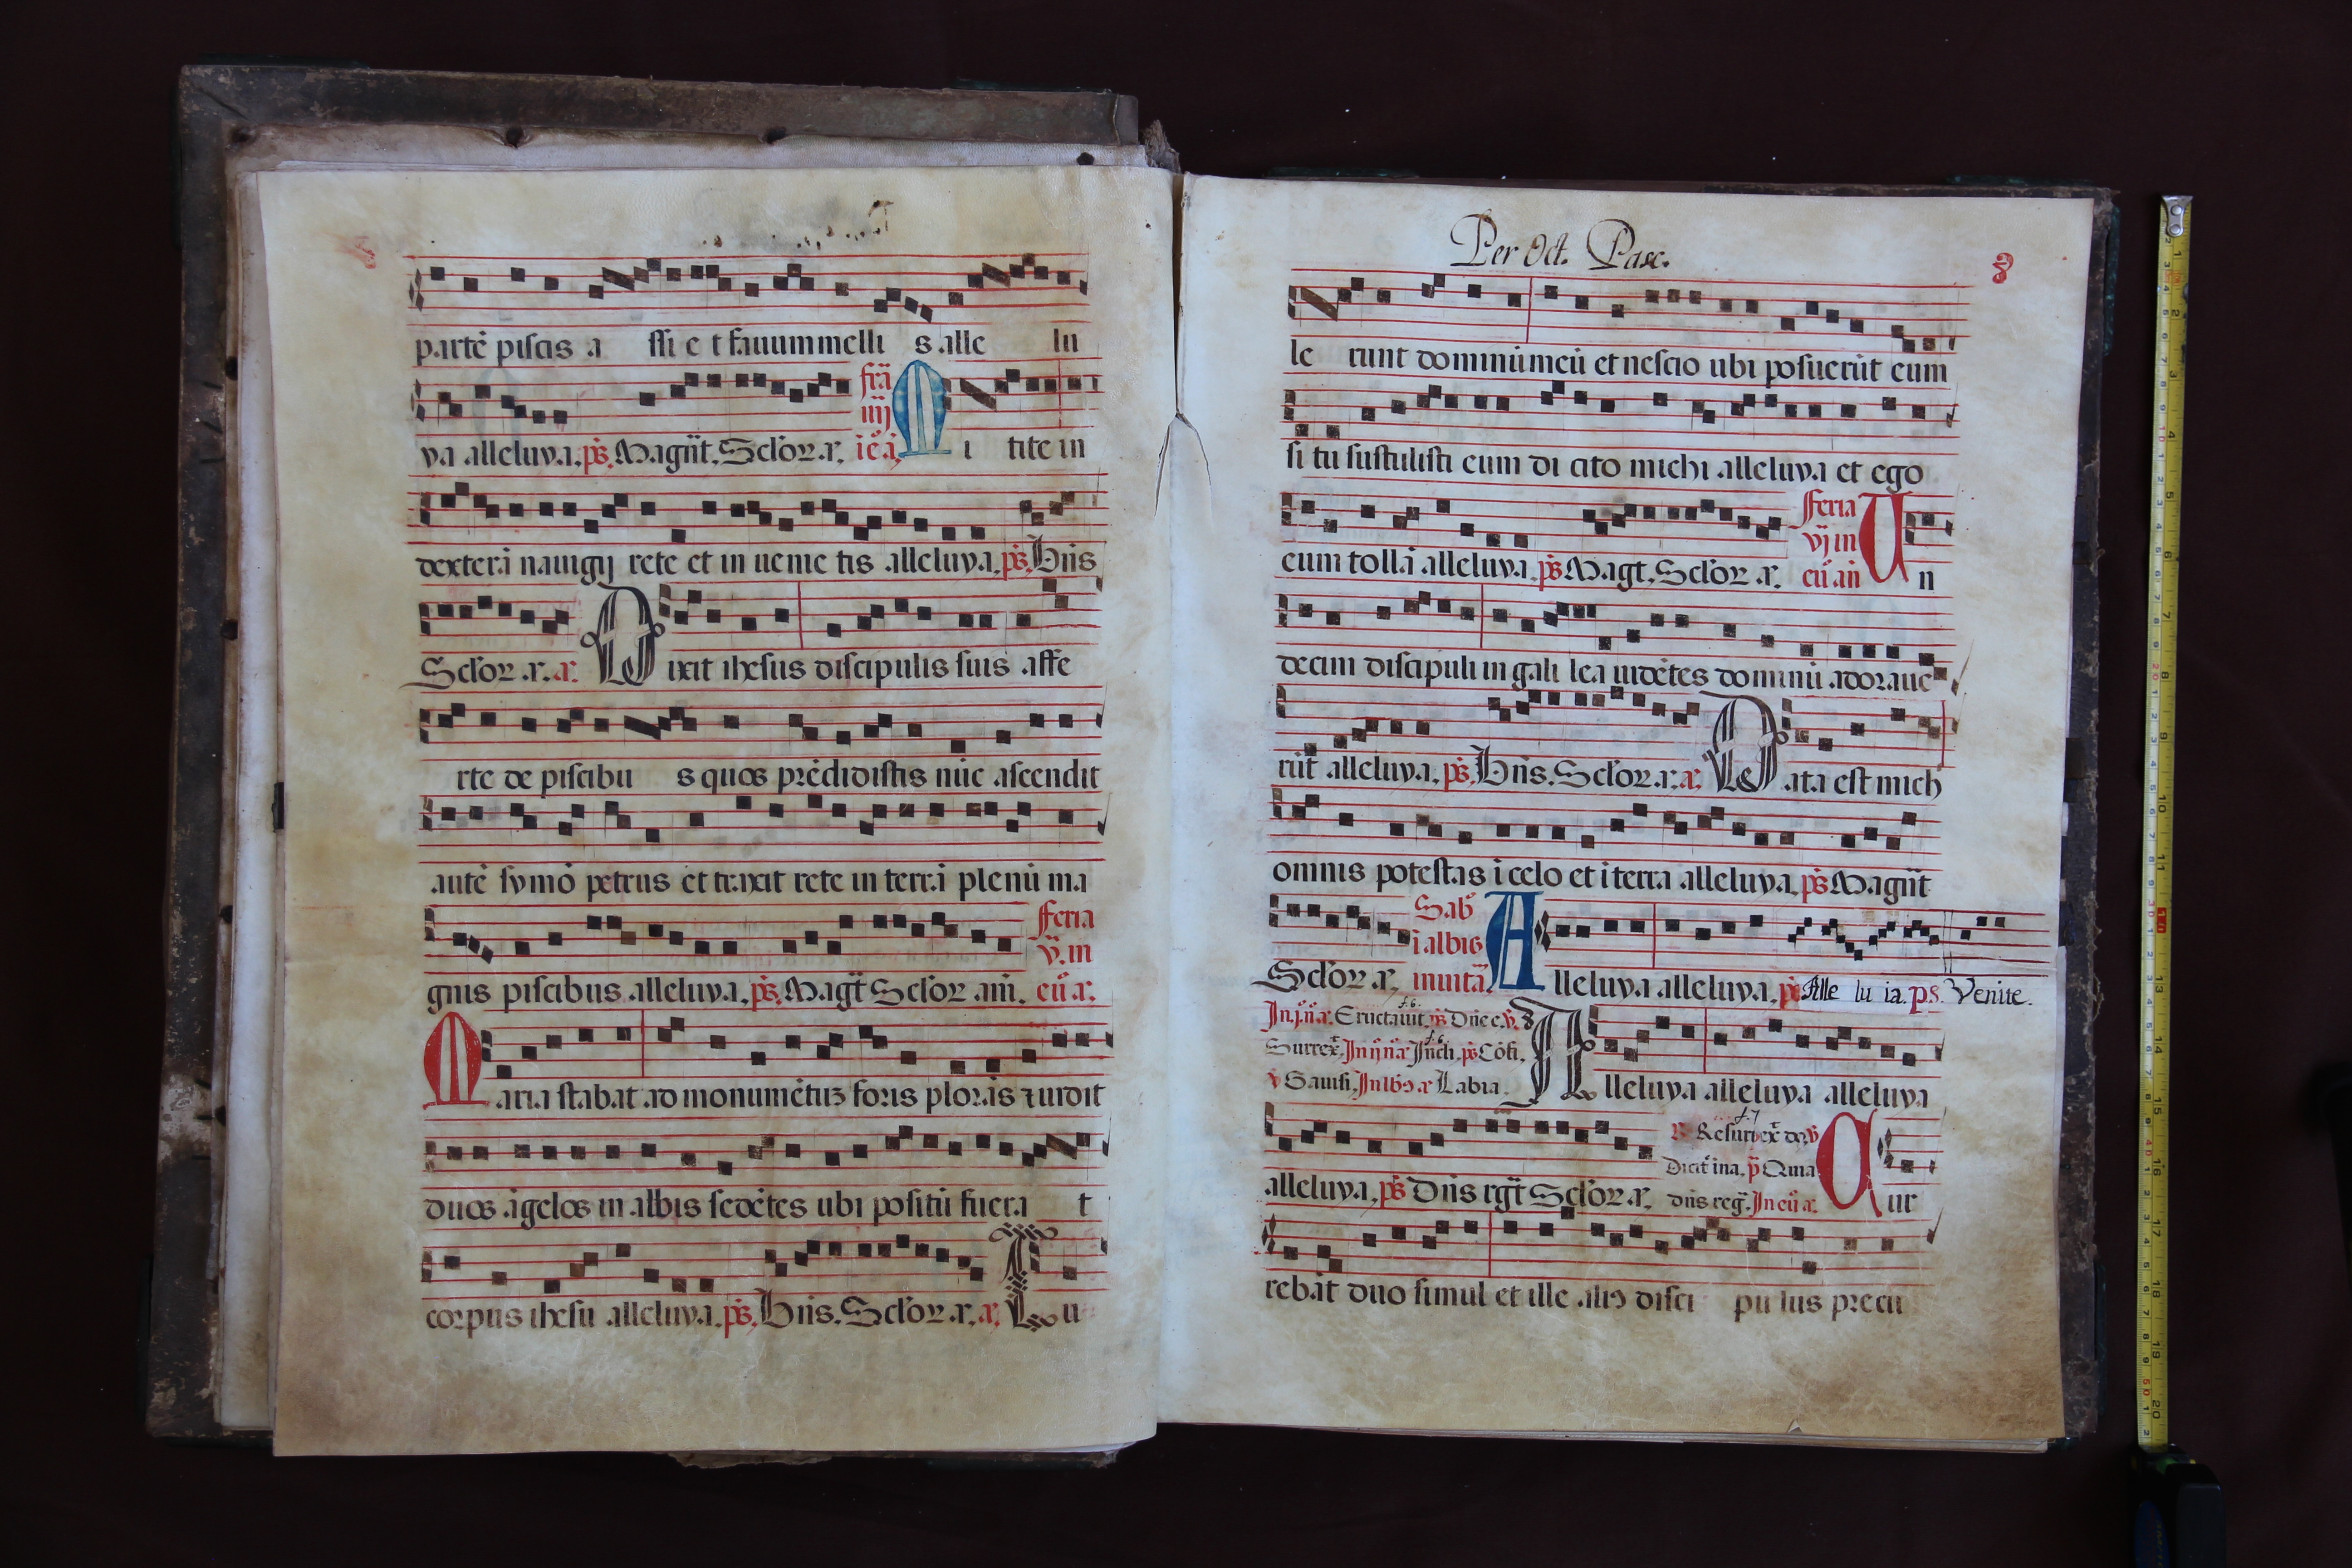 partē piscis a ssi e t fauum melli s alle lu
ya alleluya. ps. Magñt. Sclor. a. frā iiij ie ā. M i tite in
dexterā nauigij rete et in uenie tis alleluya. ps. Bñs
Sclor. a. a. D ixit ihesus discipulis suis affe
rte de piscibu s quos prēdidistis nūc ascendit
autē symō petrus et traxit rete in terrā plenū ma
gnis piscibus alleluya. ps. Magt Sclor am. feria v. in eu a.
M aria stabat ad monumētuz foris plorās ⁊ uidit
duos āgelos in albis sedētes ubi positū fuera t
corpus ihesu alleluya. ps. Bñs. Sclor. a. a. T u
Per Oct. Pasc.
8
le runt dominū meū et nescio ubi posuerūt eum
si tu sustulisti eum di cito michi alleluya et ego
eum tollā alleluya. ps. Magt. Sclor a. feria vj in eu añ U n
decim discipuli in gali lea uidētes dominū adoraue
rūt alleluya. ps. Bñs. Sclor. a. a. D ata est mich
omnis potestas ī celo et ī terra alleluya. ps. Magñt
Sclor a. Sabo ī albis inuita A lleluya alleluya. ps Alle lu ia. p.s. Venite.
In j. ñ a. Eructauit. ps Dñe e. v. A lleluya alleluya alleluya
Surrex. In ij ña ps Cōfi.
v Gauisi. In lb a Labia.
alleluya. ps Dñs rgt Sclor a. Resurrex do. v Dicit ina. p Quia dñs reg. In eu a. C ur
rebāt duo simul et ille aliꝰ disci pu lus precu